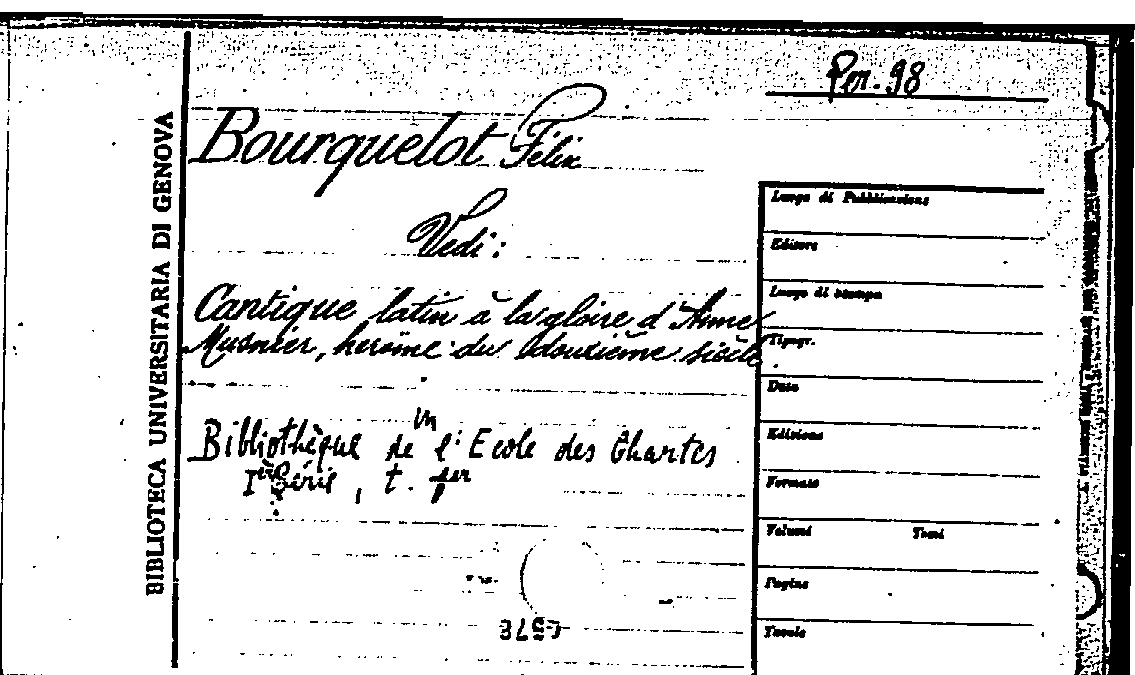 Per. 98
BIBLIOTECA UNIVERSITARIA DI GENOVA
Bourquelot Félix
Vedi:
Cantique latin à la gloire d'Anne
Musnier, heroïne du douzième siècle
in
Bibliothèque de l'Ecole des Chartes
Iere Série, t. Ier
Luogo di Pubblicazione
Editore
Luogo di stampa
Tipogr.
Data
Edizione
Formato
Volumi Tomi
Pagine
Tavole